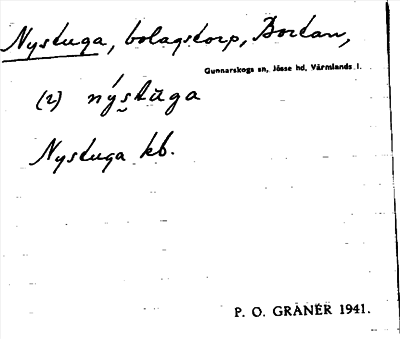 Nystuga, bolagstorp, Bortan,
Gunnarskogs sn, Jösse hd, Värmlands l.
(2) nýstūga
Nystuga kb.
P. O. GRÄNÉR 1941.